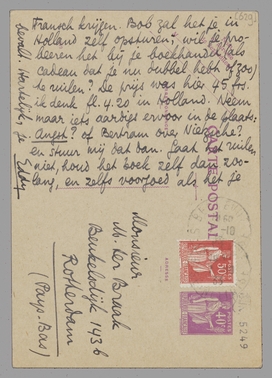 Fransch krijgen. Bob zal het je in
Holland zelf opsturen: wil je pro-
beeren het bij je boekhandel (als
cadeau dat je nu dubbel hebt of zoo)
te ruilen? De prijs was hier 45 frs.
ik denk fl. 4.20 in Holland. Neem
maar iets aardigs ervoor in de plaats:
Angst? of Bertram over Nietzsche?
en stuur mij dat dan. Gaat het ruilen
niet, houd het boek zelf dan zoo-
lang, en zelfs voorgoed als het je
bevalt. Hartelijk, je
Eddy
CARTE POSTALE
ADRESSE
Monsieur
M. ter Braak
Beukelsdijk 143b
Rotterdam
(Pays-Bas)
50
40
5249